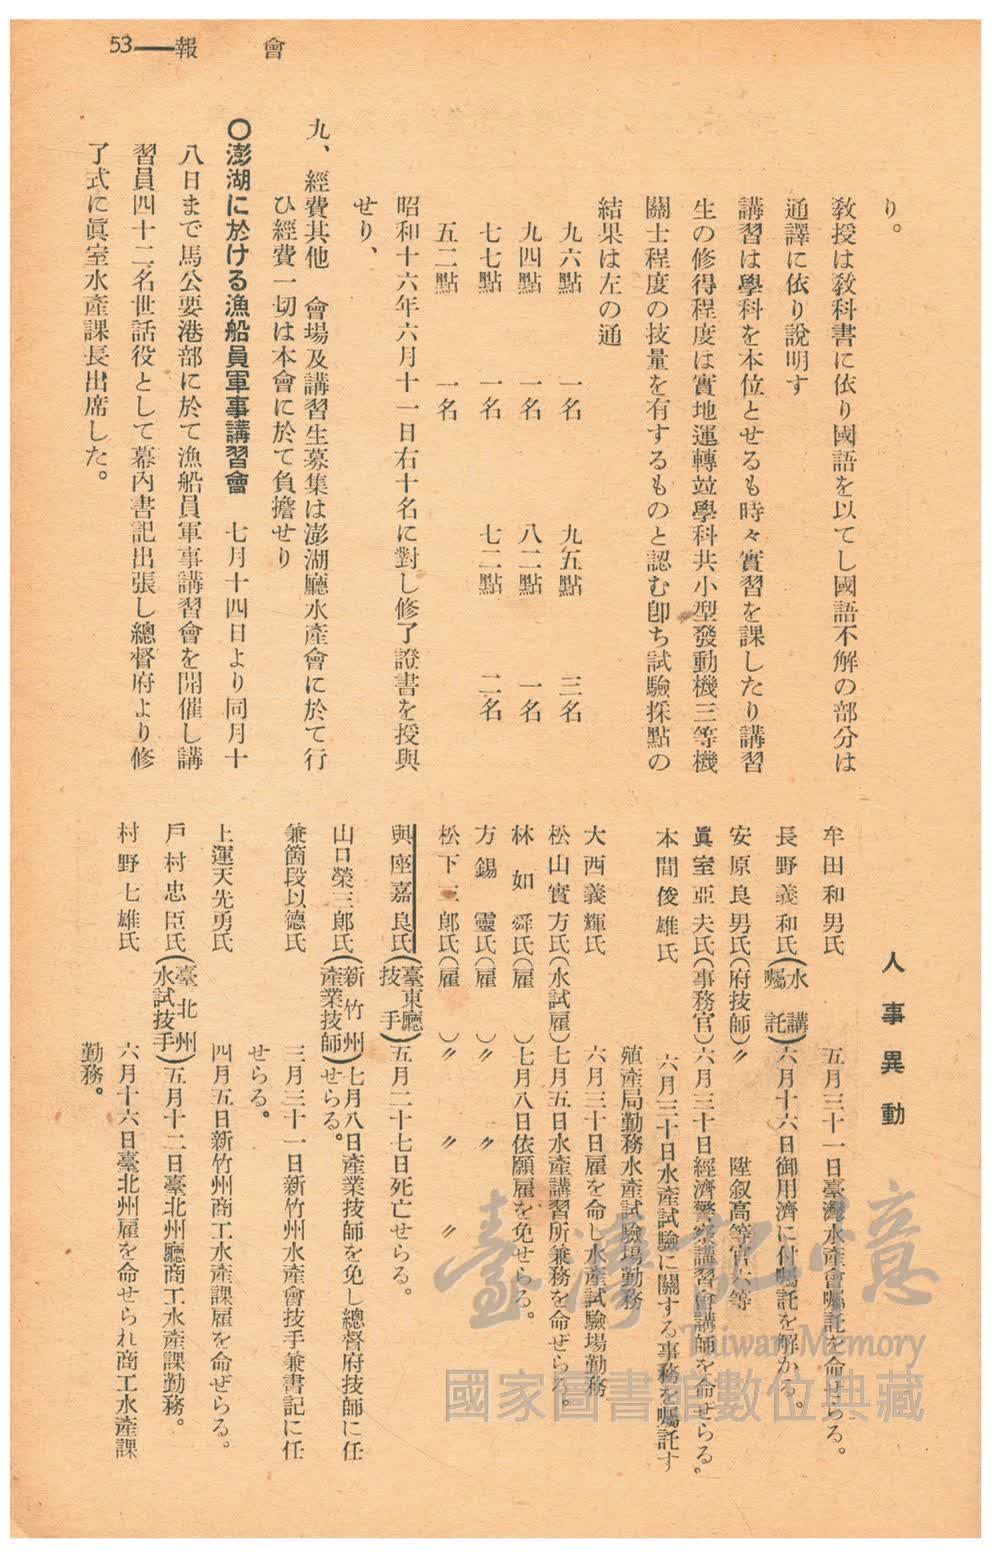 53——報會
り。
敎授は敎科書に依り國語を以てし國語不解の部分は
通譯に依り說明す
講習は學科を本位とせるも時々實習を課したり講習
生の修得程度は實地運轉竝學科共小型發動機三等機
關士程度の技量を有するものと認む卽ち試驗採點の
結果は左の通
九六點 一名 九五點 三名
九四點 一名 八二點 一名
七七點 一名 七二點 二名
五二點 一名
昭和十六年六月十一日右十名に對し修了證書を授與
せり、
九、經費其他 會場及講習生募集は澎湖廳水產會に於て行
ひ經費一切は本會に於て負擔せり
〇澎湖に於ける漁船員軍事講習會 七月十四日より同月十
八日まで馬公要港部に於て漁船員軍事講習會を開催し講
習員四十二名世話役として幕內書記出張し總督府より修
了式に眞室水產課長出席した。
人事異動
牟田和男氏 五月三十一日臺灣水產會囑託を命ぜらる。
長野義和氏(水講囑託)六月十六日御用濟に付囑託を解かる。
安原良男氏(府技師)〃 陞敍高等官六等
眞室亞夫氏(事務官)六月三十日經濟警察講習會講師を命ぜらる。
本間俊雄氏 六月三十日水產試驗に關する事務を囑託す
殖產局勤務水產試驗場勤務
大西義輝氏 六月三十日雇を命し水產試驗場勤務
松山實方氏(水試雇)七月五日水產講習所兼務を命ぜらる。
林如舜氏(雇)七月八日依願雇を免せらる。
方錫靈氏(雇)〃 〃
松下三郞氏(雇)〃 〃 〃
與座嘉良氏(臺東廳技手)五月二十七日死亡せらる。
山口榮三郞氏(新竹州產業技師)七月八日產業技師を免し總督府技師に任
せらる。
兼箇段以德氏 三月三十一日新竹州水產會技手兼書記に任
せらる。
上運天先勇氏 四月五日新竹州商工水產課雇を命ぜらる。
戶村忠臣氏(臺北州水試技手)五月十二日臺北州廳商工水產課勤務。
村野七雄氏 六月十六日臺北州雇を命せられ商工水產課
勤務。
臺灣記憶
Taiwan Memory
國家圖書館數位典藏